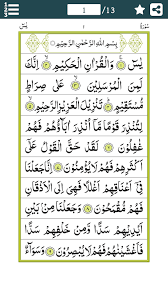 1 /13
بِسْمِ اللّٰهِ الرَّحْمٰنِ الرَّحِيْمِ
يٰسٓ ۝١ وَالْقُرْاٰنِ الْحَكِيْمِ ۝٢ اِنَّكَ
لَمِنَ الْمُرْسَلِيْنَ ۝٣ عَلٰى صِرَاطٍ
مُّسْتَقِيْمٍ ۝٤ تَنْزِيْلَ الْعَزِيْزِ الرَّحِيْمِ ۝٥
لِتُنْذِرَ قَوْمًا مَّآ اُنْذِرَ اٰبَآؤُهُمْ فَهُمْ
غٰفِلُوْنَ ۝٦ لَقَدْ حَقَّ الْقَوْلُ عَلٰٓى اَكْثَرِهِمْ
فَهُمْ لَا يُؤْمِنُوْنَ ۝٧ اِنَّا جَعَلْنَا
فِيْٓ اَعْنَاقِهِمْ اَغْلٰلًا فَهِيَ اِلَى الْاَذْقَانِ
فَهُمْ مُّقْمَحُوْنَ ۝٨ وَجَعَلْنَا مِنْۢ بَيْنِ
اَيْدِيْهِمْ سَدًّا وَّمِنْ خَلْفِهِمْ سَدًّا
فَاَغْشَيْنٰهُمْ فَهُمْ لَا يُبْصِرُوْنَ ۝٩ وَسَوَآءٌ